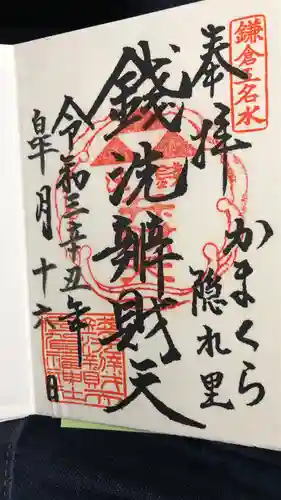 鎌倉五名水
奉拝
かまくら
隠れ里
銭洗辨財天
令和三辛丑年
皐月十六日